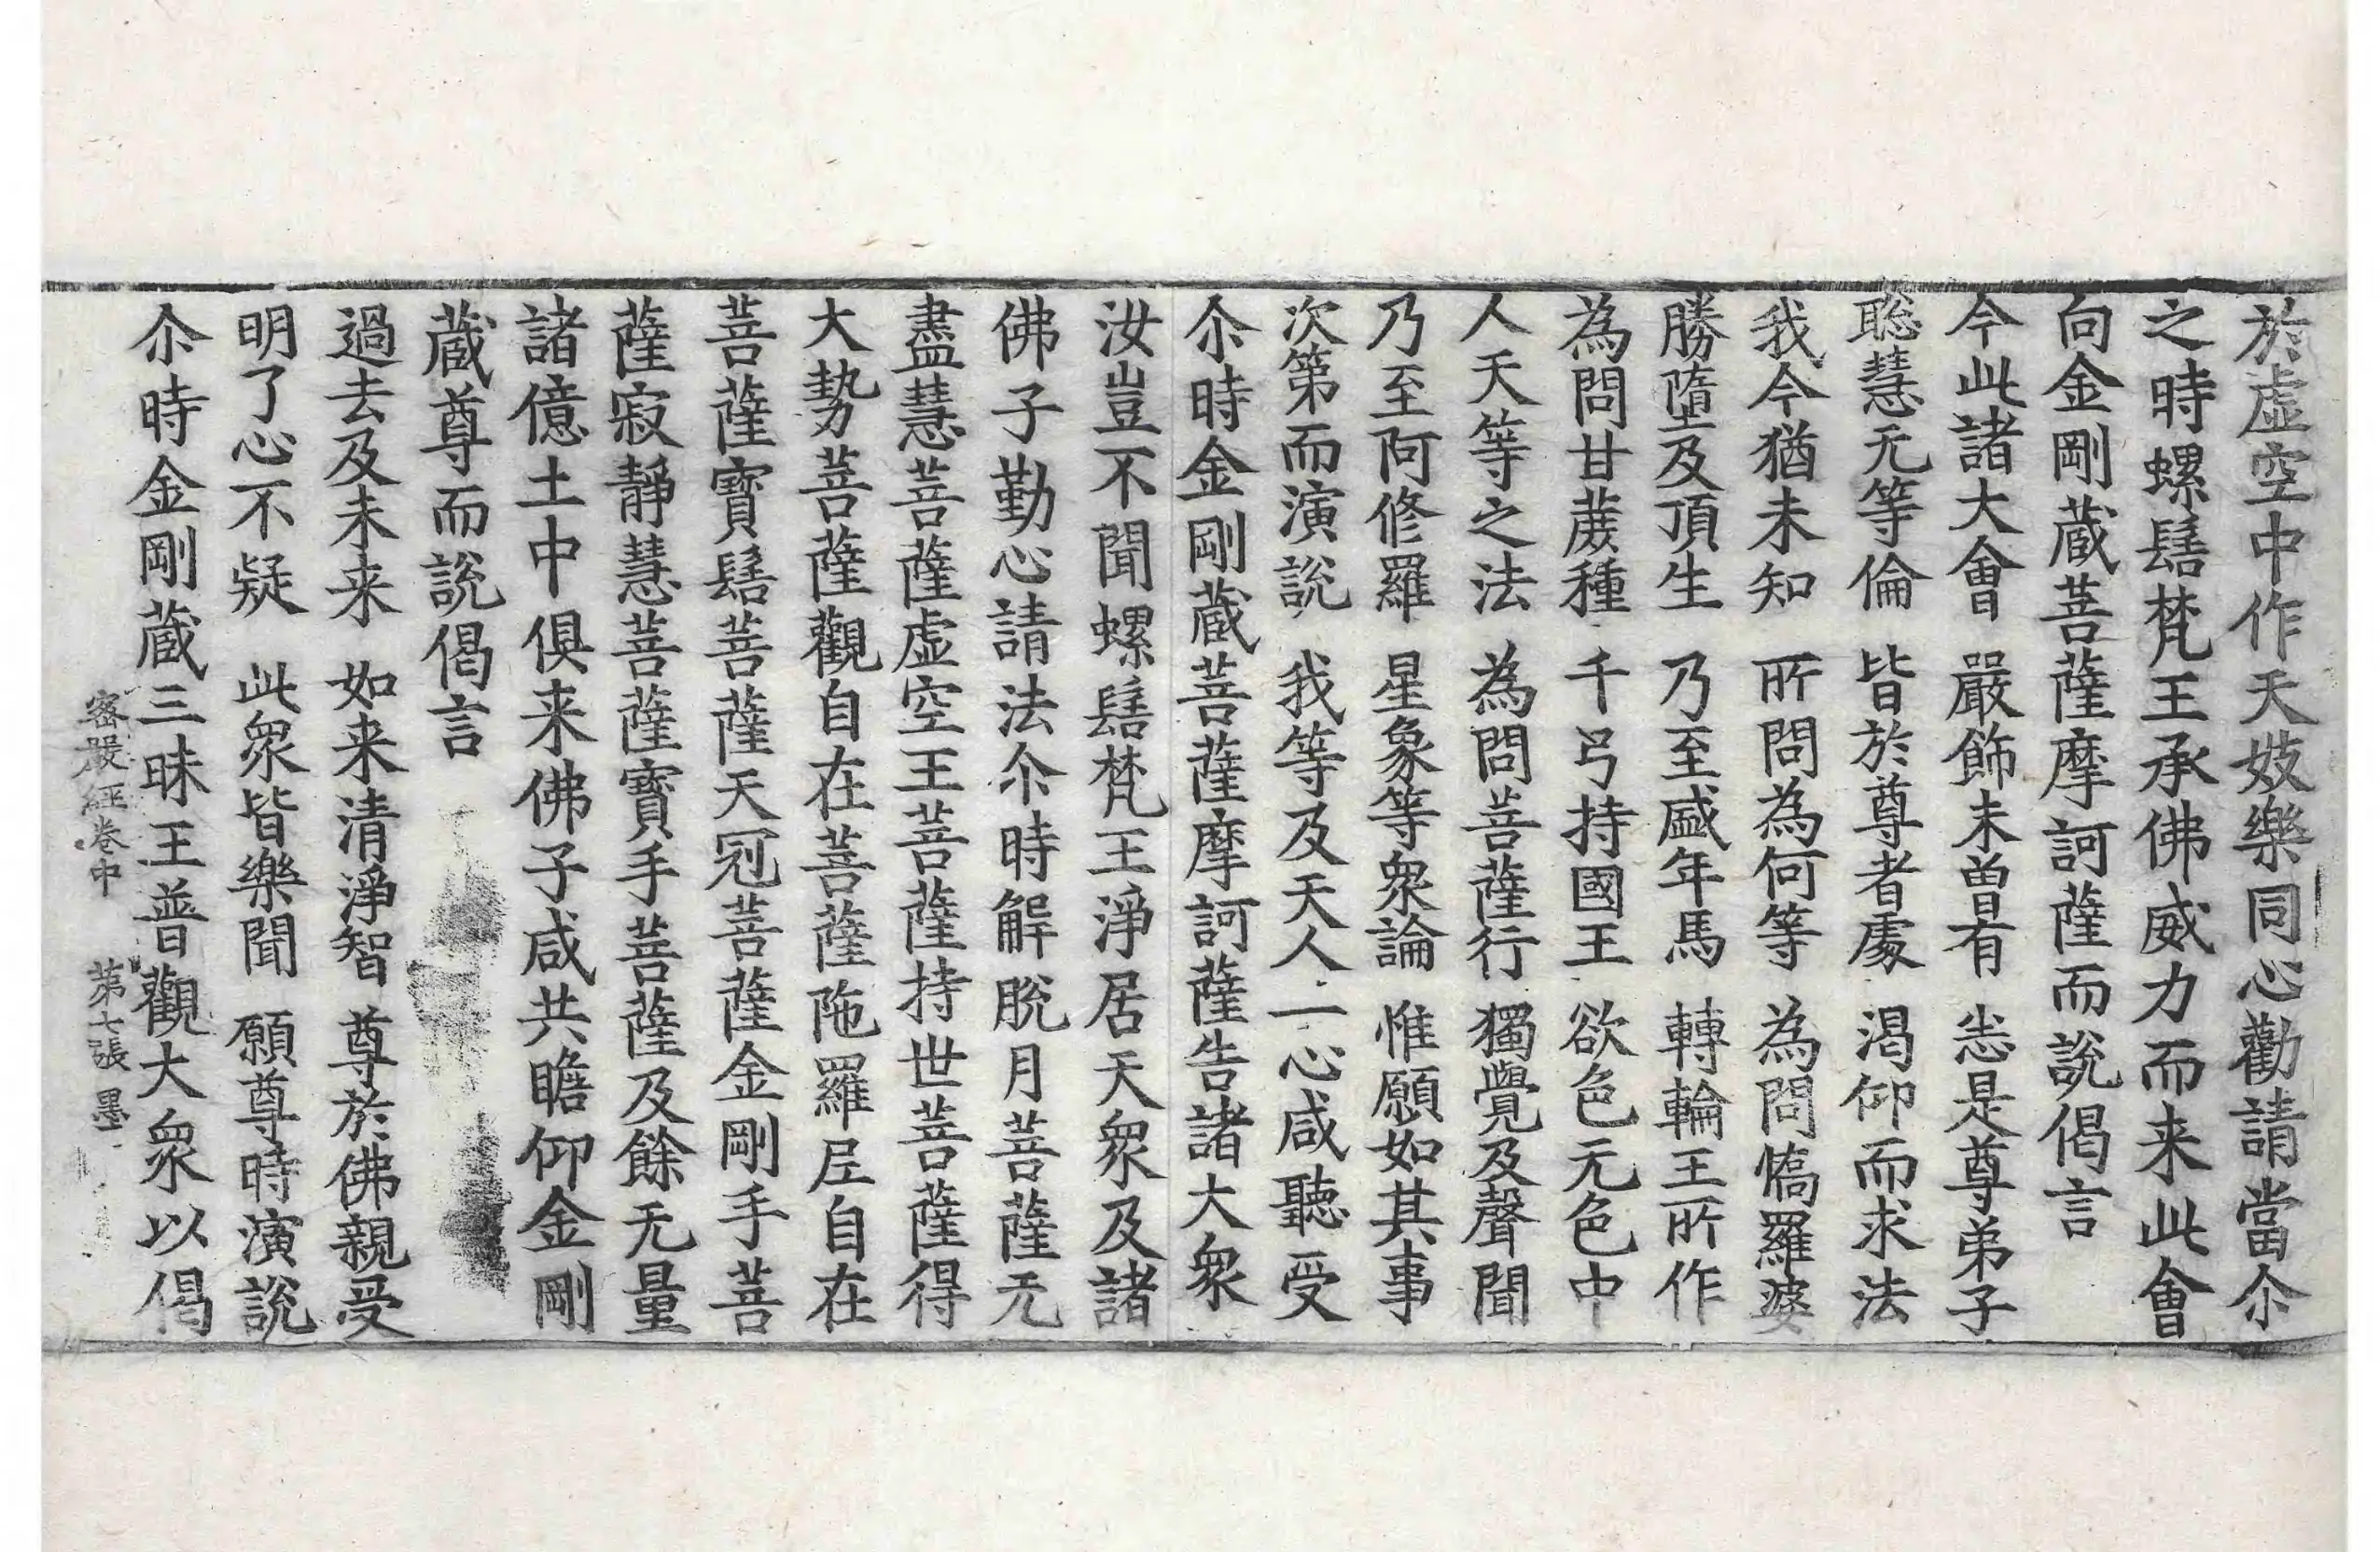 於虛空中作天妓樂同心勸請當尒
之時螺髻梵王承佛威力而来此會
向金剛蔵菩薩摩訶薩而說偈言
今此諸大會　嚴飾未曽有　恙是尊弟子
聡慧无等倫　皆於尊者䖏　渴仰而求法
我今猶未知　所問為何等　為問憍羅婆
勝墮及頂生　乃至盛年馬　轉輪王所作
為問甘蔗種　千弓持國王　欲色无色中
人天等之法　為問菩薩行　獨覺及聲聞
乃至阿修羅　星象等衆論　惟願如其事
次第而演說　我等及天人　一心咸聽受
尒時金剛蔵菩薩摩訶薩告諸大衆
汝豈不聞螺髻梵王淨居天衆及諸
佛子勤心請法尒時解脫月菩薩无
盡慧菩薩虛空王菩薩持世菩薩得
大勢菩薩觀自在菩薩陁羅尼自在
菩薩寶髻菩薩天冠菩薩金剛手菩
薩寂靜慧菩薩寶手菩薩及餘无量
諸億土中俱来佛子咸共瞻仰金剛
蔵尊而說偈言
過去及未来　如来清淨智　尊於佛親受
明了心不疑　此衆皆樂聞　願尊時演說
尒時金剛蔵三昧王普觀大衆以偈
密嚴經卷中　第七張　墨